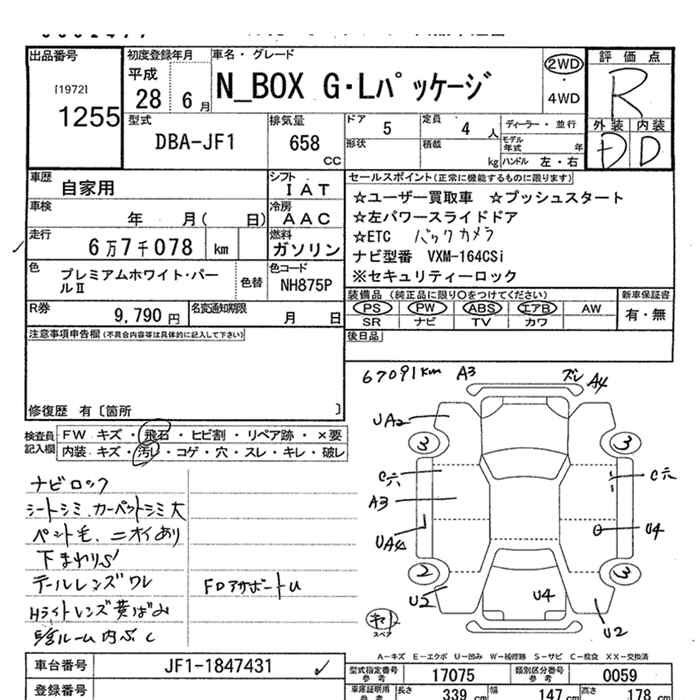 出品番号
[1972]
1255
初度登録年月
平成
28 6月
車名・グレード
N_BOX G・Lパッケージ
2WD
・
4WD
評価点
R
外装 内装
D D
型式
DBA-JF1
排気量
658
CC
ドア 5
定員 4 人
形状
積載 kg
ディーラー・並行
モデル年式 年
ハンドル 左・右
車歴
自家用
シフト
IAT
車検
年 月( 日)
冷房
AAC
走行
6万7千078 km
燃料
ガソリン
色
プレミアムホワイト・パールⅡ
色替
色コード
NH875P
R券
9,790 円
名変通知期限
月 日
セールスポイント(正常に機能するものに限ります)
☆ユーザー買取車 ☆プッシュスタート
☆左パワースライドドア
☆ETC バックカメラ
ナビ型番 VXM-164CSi
※セキュリティーロック
装備品(純正品に限り○をつけてください)
PS PW ABS エアB AW
SR ナビ TV カワ
新車保証書
有・無
後日品
注意事項申告欄(不具合内容等は具体的に記入して下さい)
修復歴 有〔箇所 〕
検査員記入欄
FW キズ・飛石・ヒビ割・リペア跡・×要
内装 キズ・汚レ・コゲ・穴・スレ・キレ・破レ
ナビロック
シートシミ、カーペットシミ大
ペント毛、ニオイあり
下まわりS
テールレンズワレ
Hライトレンズ黄ばみ
ルーム内
FDアポートU
67091km A3 ズレ A4
UA2
3 3
C穴 C穴
A3
UA4 U4
2 3
U2 U4
キ
スペア
U2
A-キズ E-エクボ U-凹み W-補修跡 S-サビ C-腐食 XX-交換済
車台番号
JF1-1847431
型式指定番号
参考
17075
類別区分番号
参考
0059
登録番号
車庫証明用
参考
長さ 339 cm
幅 147 cm
高さ 178 cm